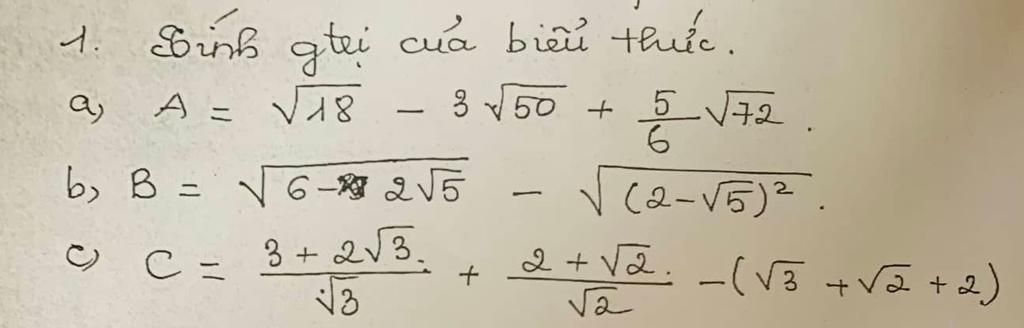 1. Tính gtrị của biểu thức.
a, A = √18 - 3√50 + 5/6 √72.
b, B = √(6 - 2√5) - √((2-√5)²).
c, C = (3 + 2√3)/√3 + (2 + √2)/√2 - (√3 + √2 + 2)